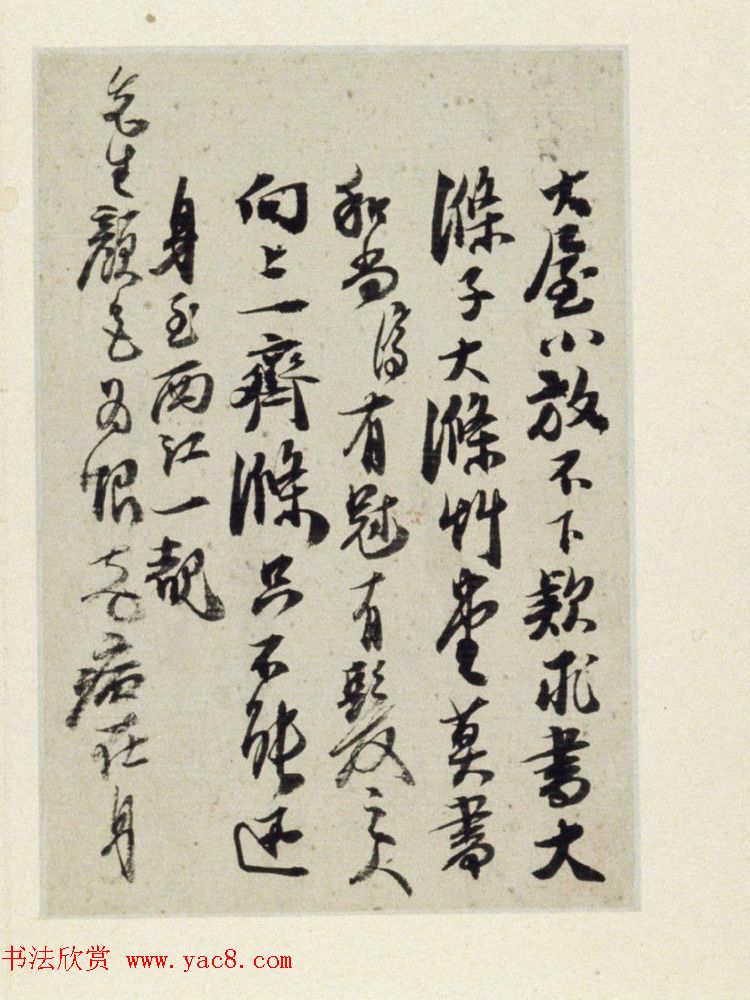 大屋小放不下款求書大
滌子大滌艸堂莫書
和尚濟有冠有髮之人
向上一齊滌只不能迅
身至西江一覩
先生顏色為恨老病在身
书法欣赏 www.yac8.com